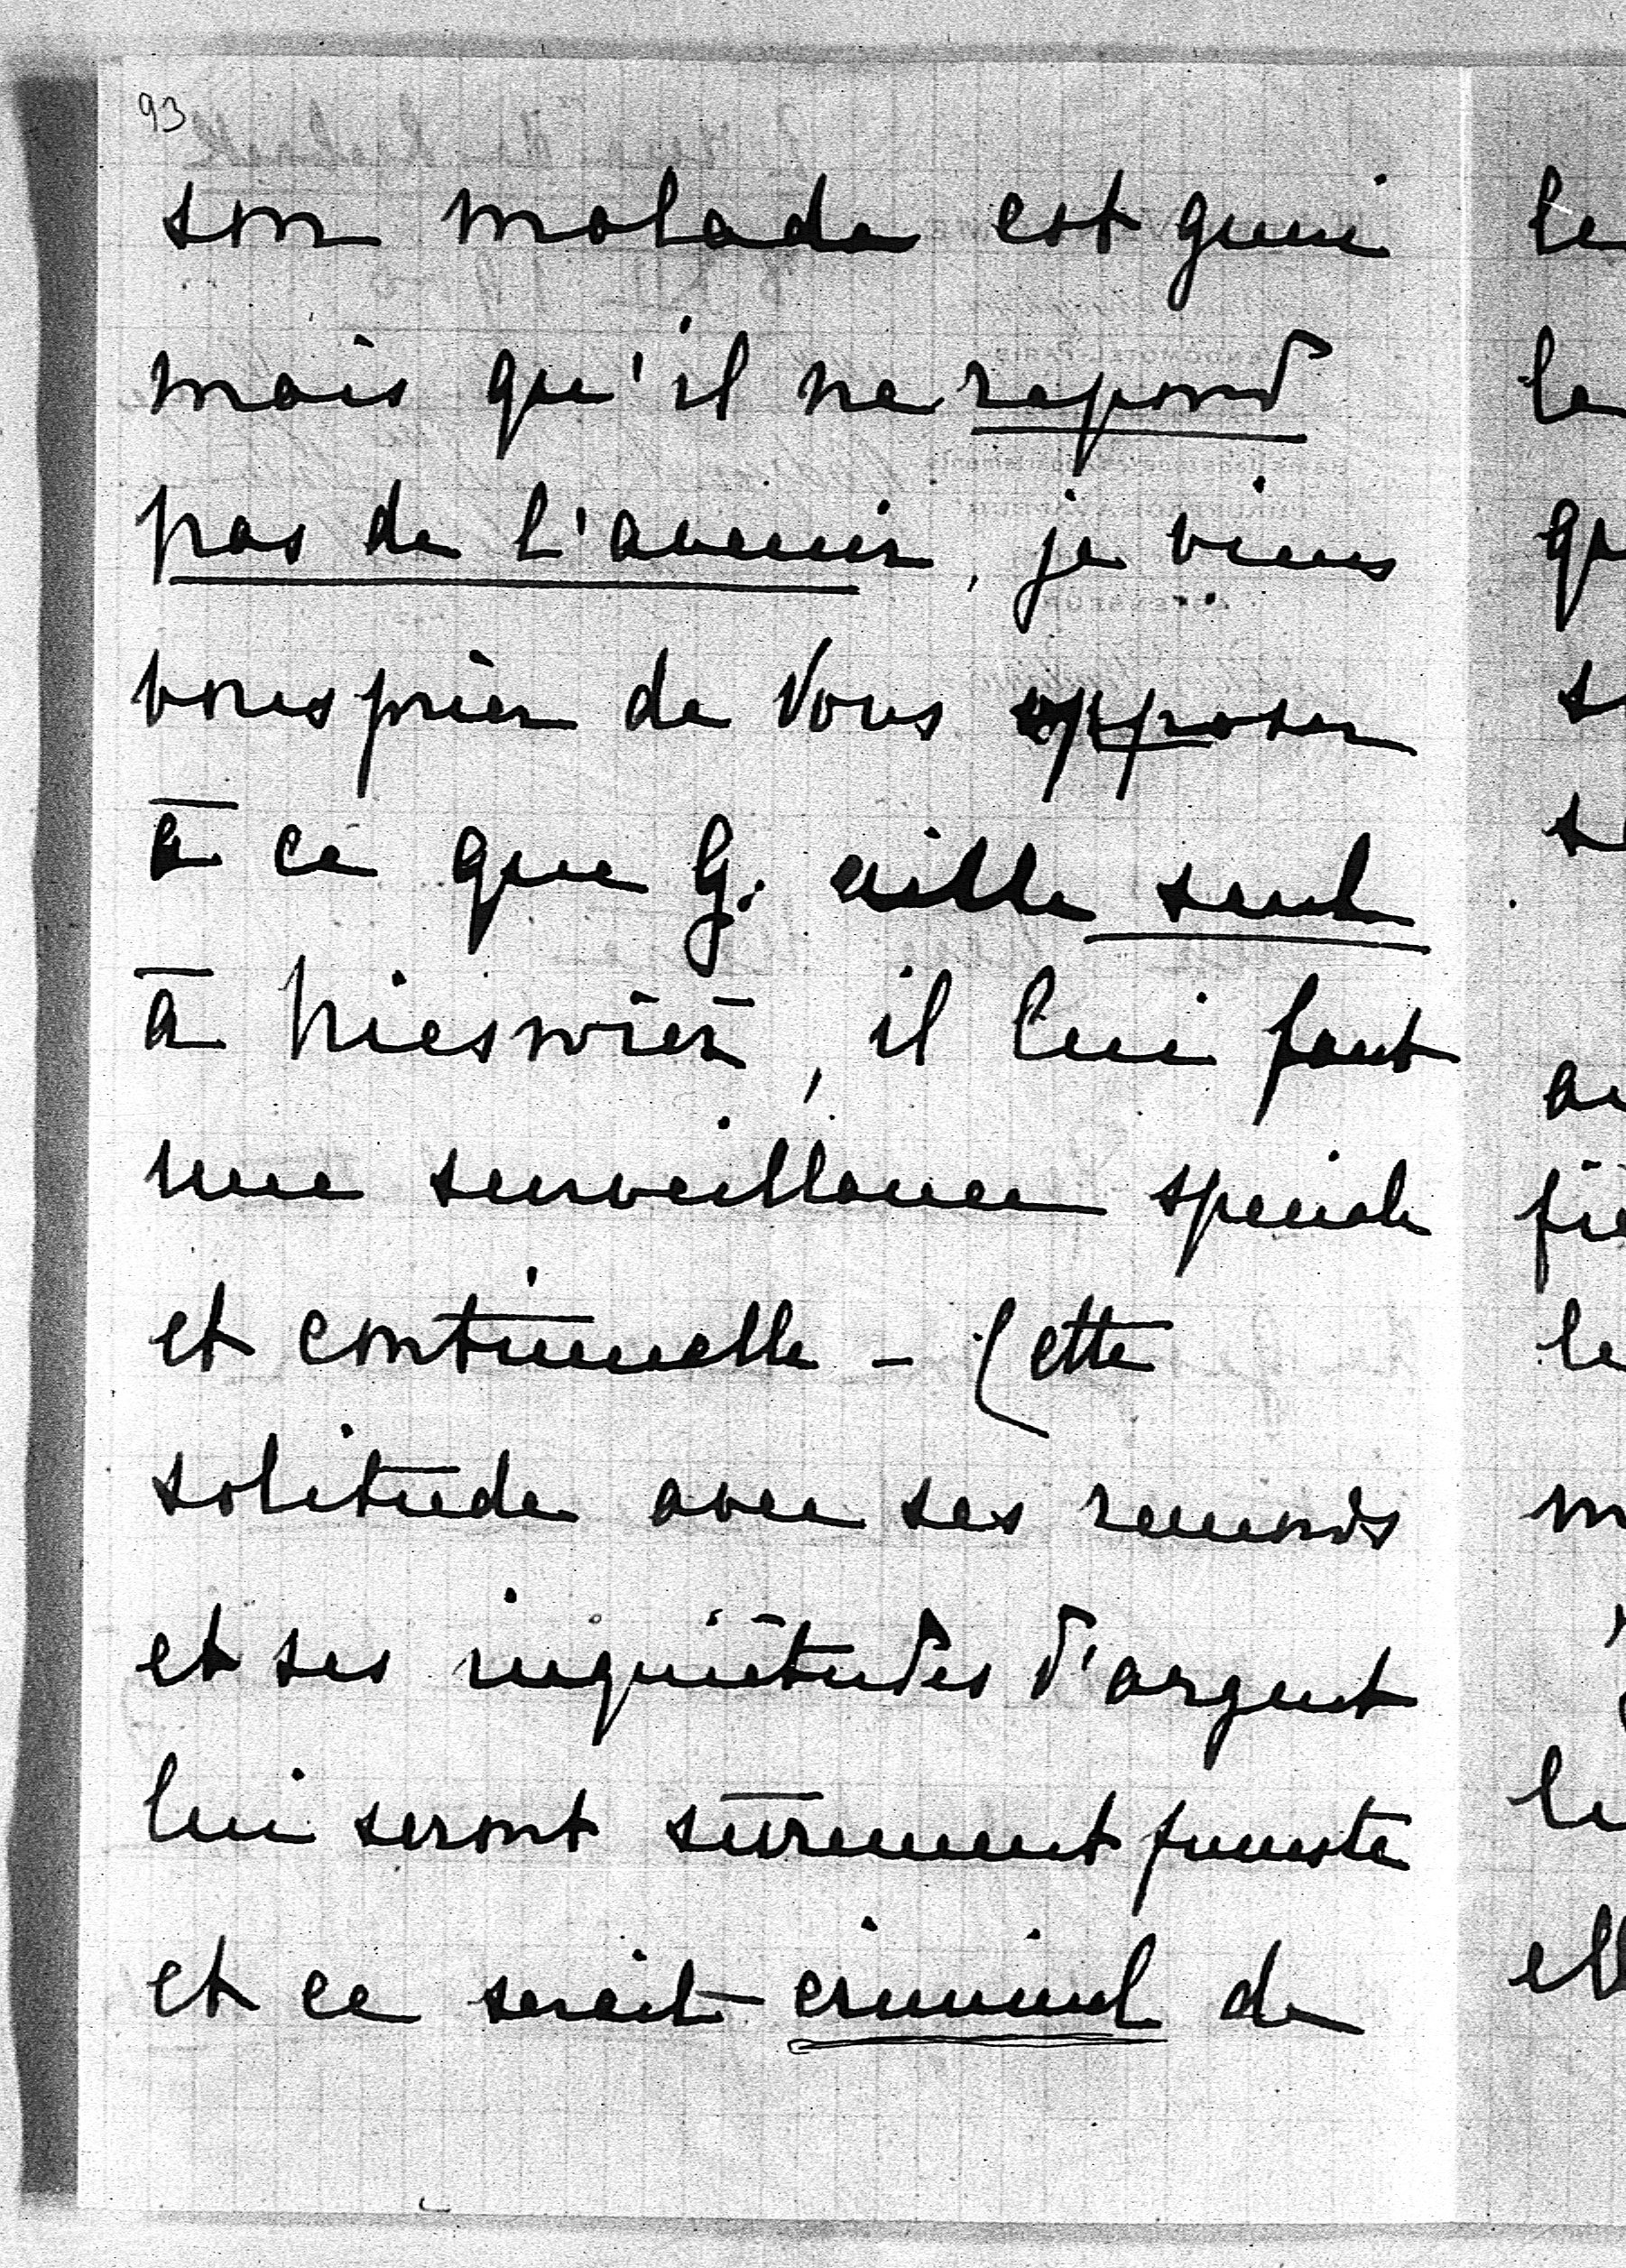 93
son malade est guéri
mais qu'il ne répond
pas de l'avenir, je viens
vous prier de vous opposer
à ce que G. aille seul
à Kiesworer, il lui faut
une surveillance spéciale
et continuelle - Cette
solitude avec ses remords
et ses inquiétudes d'argent
lui seront sûrement funeste
et ce serait criminel de